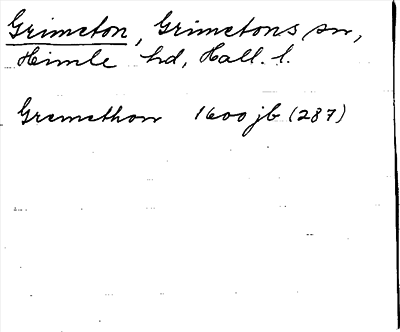 Grimeton, Grimetons sn,
Himle hd, Hall. l.
Gremethon 1600 jb (287)